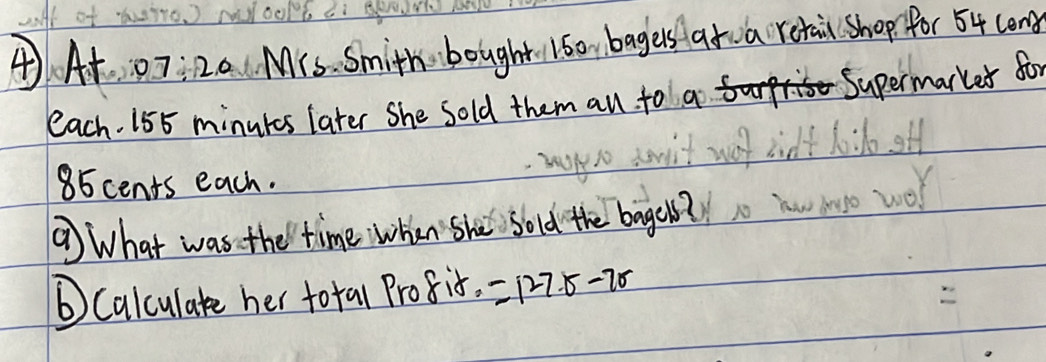 ④ At 07:20 Mrs. Smith bought 150 bagels at a retail shop for 54 cents
each. 155 minutes later she sold them all to a surprise Supermarket for
85 cents each.
a) What was the time when she sold the bagels?
b) Calculate her total Profit. = 127.5 - 75
=